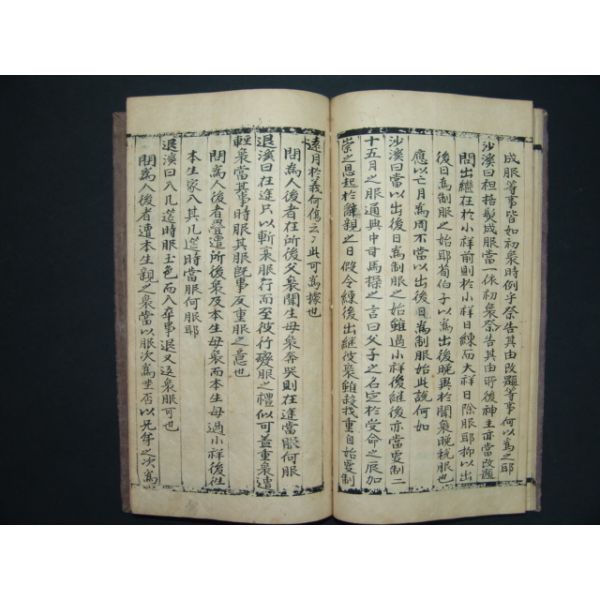 成服等事皆如初喪時例乎祭告其由改題等事何以為之耶
沙溪曰袒括髮成服當一依初喪祭告其由而後神主亦當改題
問出繼在於小祥前則於小祥日練而大祥日除服耶抑以出
後日為制服之始耶荀伯子以為出後晚異於聞喪晚稅服也
應以亡月為周不當以出後日為制服始此說何如
沙溪曰當以出後日為制服之始雖過小祥後繼後亦當更制二
十五月之服通典中司馬操之言曰父子之名定於受命之辰加
崇之恩起於辭親之日假令練後出繼彼喪雖殺我重自始更制
遠月於義何傷云々此可為據也
問為人後者在所後父喪聞生母喪奔哭則在途當服何服
退溪曰在途只以斬衰服行而至彼行服之禮似可盖重喪遭
輕喪當其事時服其服既事反重服之意也
問為人後者遭所後喪及本生母喪而本生母過小祥後往
本生家入其几筵時當服何服耶
退溪曰入几筵時服玉色而入卒事退又返喪服可也
問為人後者遭本生親之喪當以服次為坐否以兄弟之次為